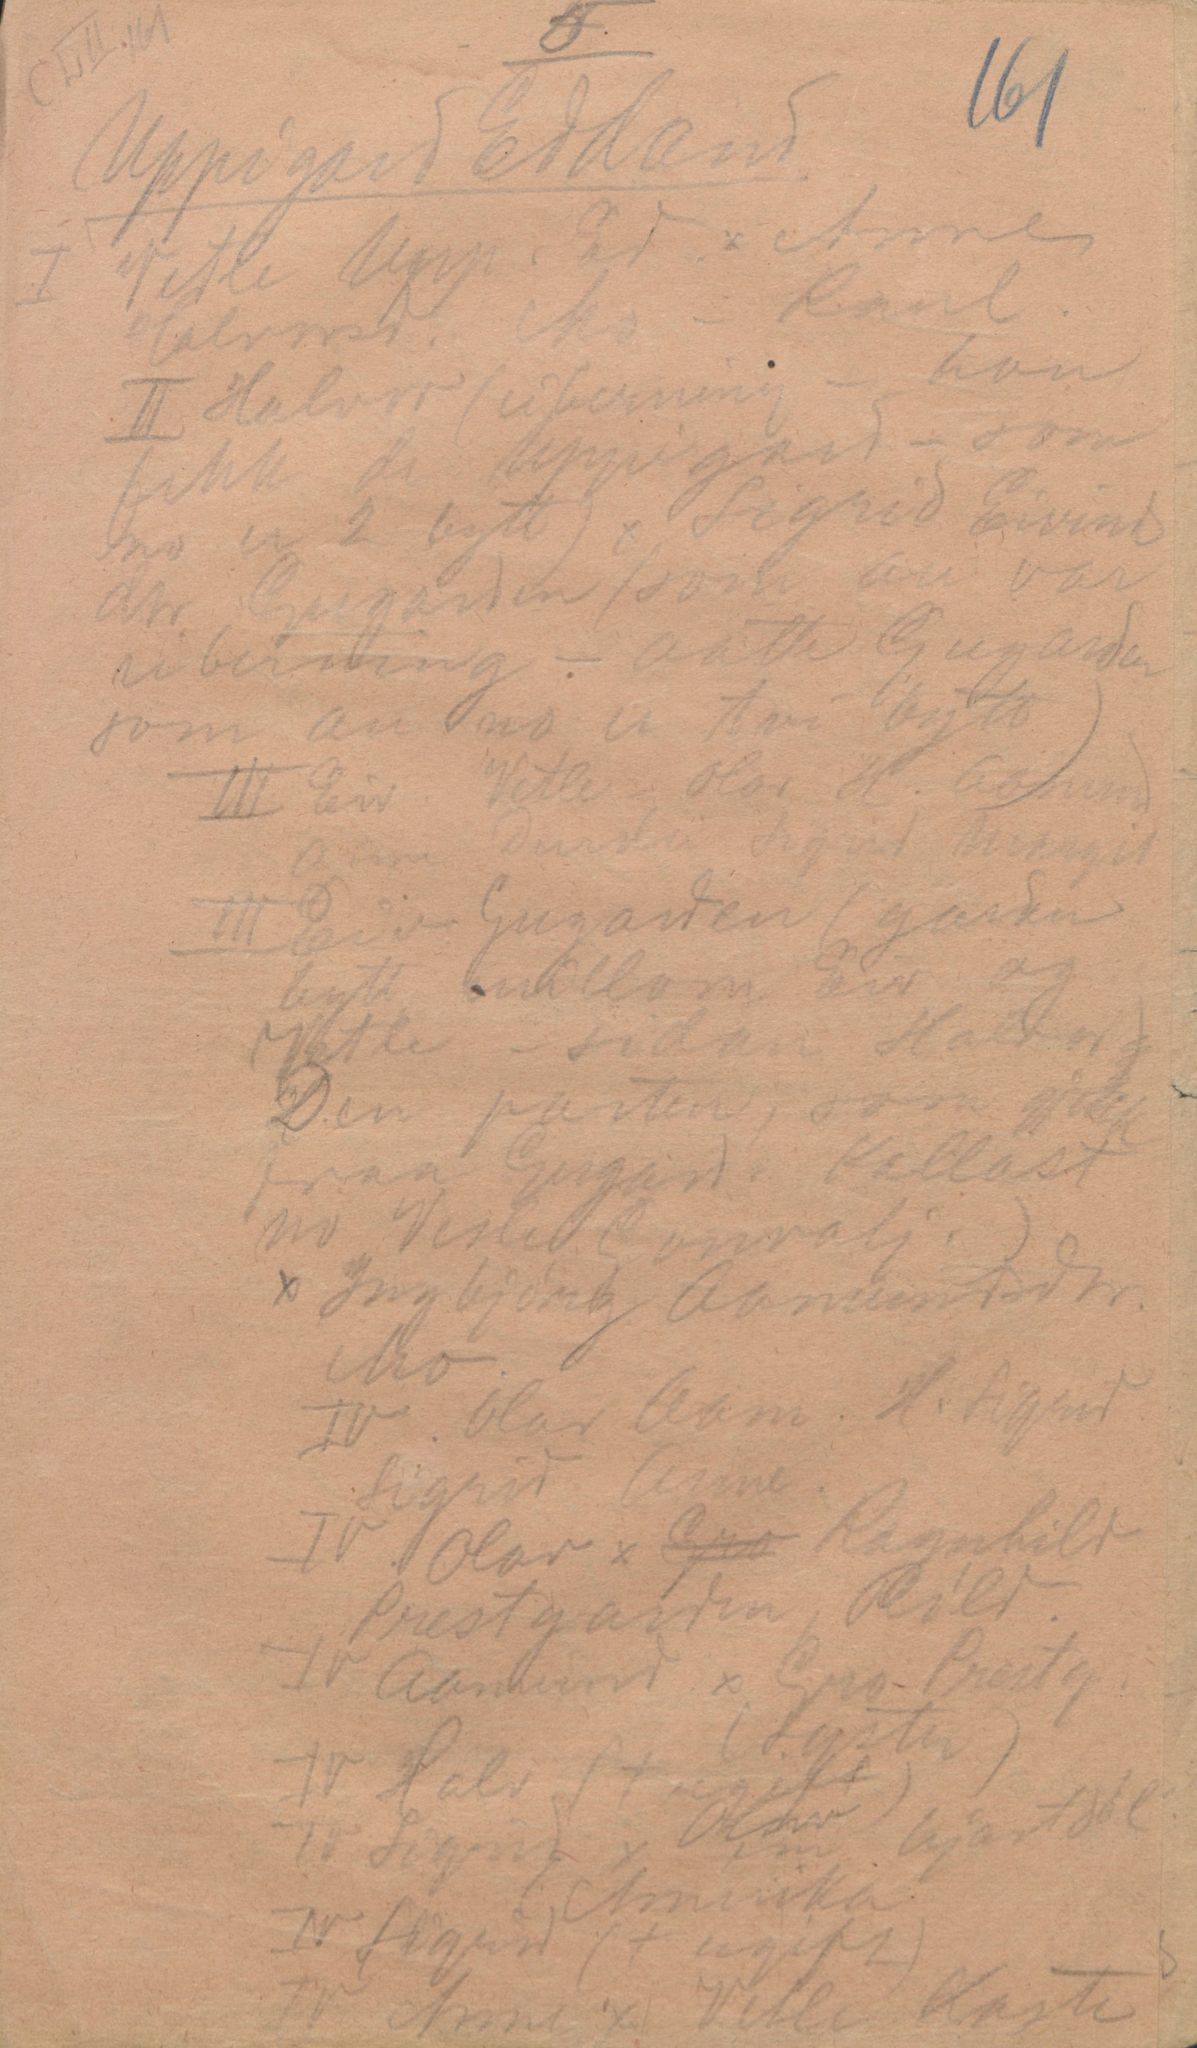 5.
161
Uppigard Edland
I Vetle Upp. Ed. x Anne
Halvorsd. Mo - Raul.
II Halvor (einberning - han
fekk de Uppigard - som
no er 2 bytt) x Sigrid Eivinds
dtr Gugarden (som au var
einberning - aatte Gugarden
som au no er tvi bytt)
III Eiv. Vetle - Olav H. Aamund
Anne Sigrid Margit
III Eiv Gugarden (garden
bytt millom Eiv og
Vetle - sidan Halvor)
Den parten, som gjekk
fraa Gugard. kallast
no Vesle )
x Ingbjörg Aamundsdtr.
Mo.
IV. Olav Aam. H. Sigrid
Sigrid Anne.
IV. Olav x Gro Ragnhild
Prestgarden,
IV Aamund x Gro Prestg.
(syster)
IV Halv (+ ugift)
IV Sigrid x Olav Hjartdöl
Amerika
IV Sigrid (+ ugift)
IV Anne x Vetle